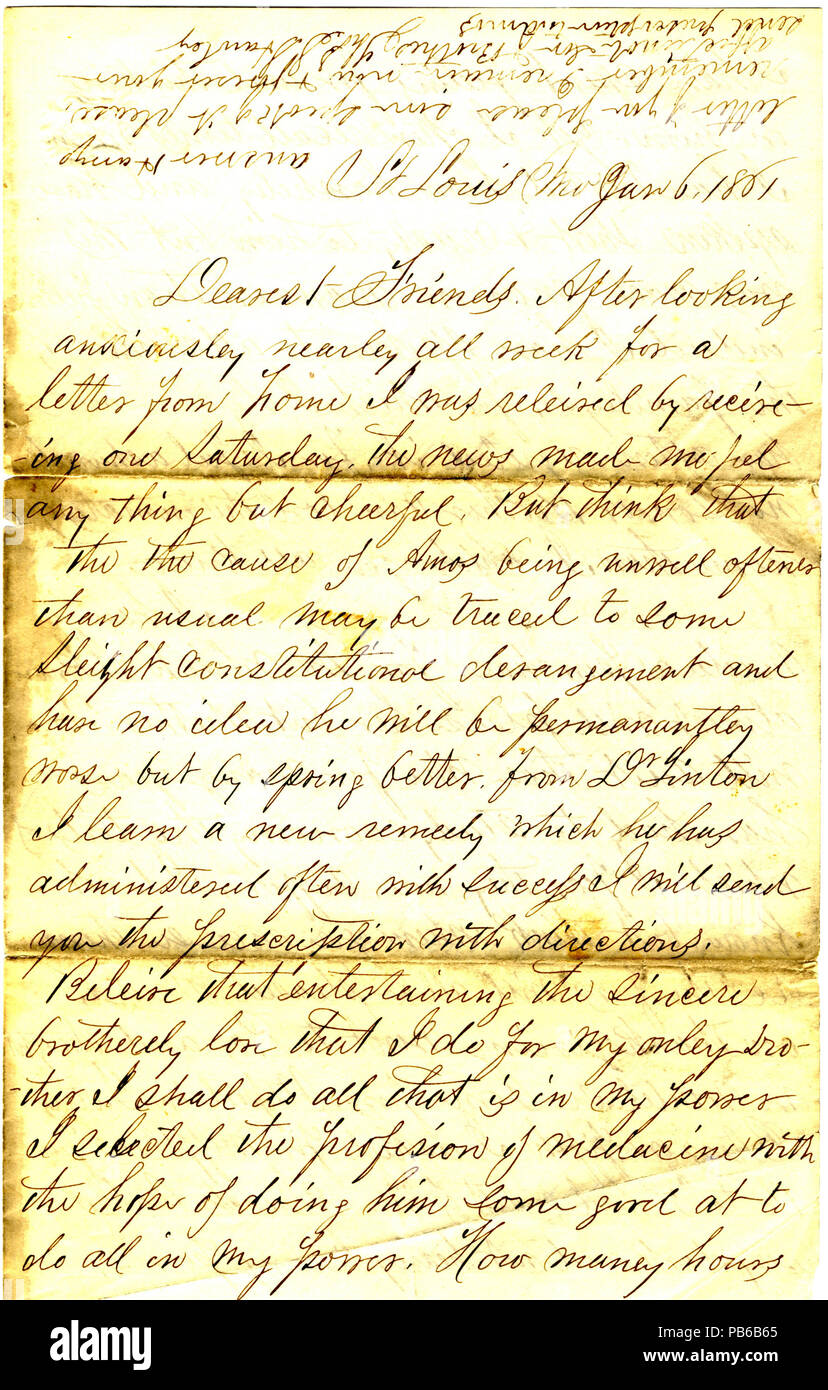 answer Stamp
letter if you please
remember I remain now & forever your
affectionate Brother
send prescription
St Louis Mo Jan 6, 1861
Dearest Friends. After looking
anxiousley nearley all week for a
letter from home I was releived by receive-
-ing one Saturday. the news made me feel
any thing but cheerful. But think that
the the cause of Amos being unwell oftener
than usual may be traced to some
sleight constitutional derangement and
have no idea he will be permanantley
worse but by spring better. from Dr Linton
I learn a new remedy which he has
administered often with success I will send
you the prescription with directions.
Beleive that entertaining the sincere
brotherely love that I do for my onley bro-
-ther I shall do all that is in my power
I selected the profesion of medacine with
the hope of doing him some good at to
do all in my power. How maney hours
alamy
Image ID: PB6B65
www.alamy.com